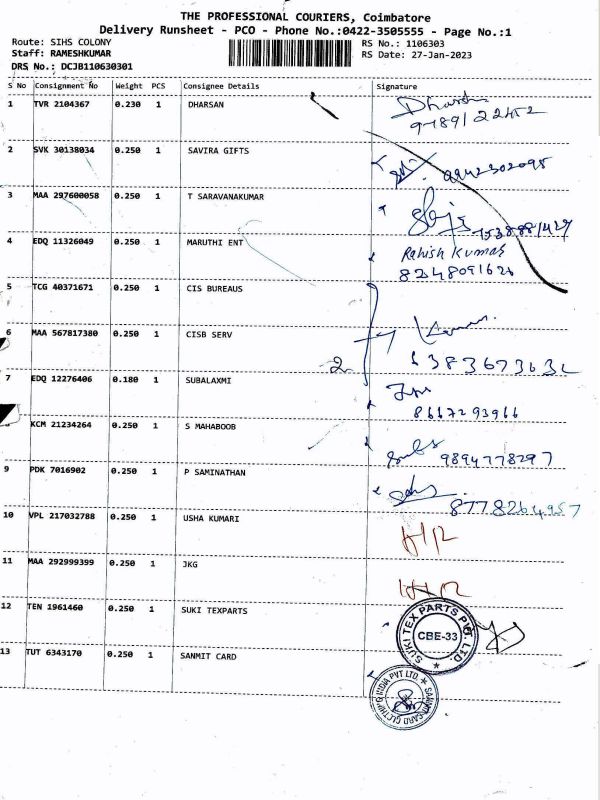 THE PROFESSIONAL COURIERS, Coimbatore
Delivery Runsheet - PCO - Phone No.:0422-3505555 - Page No.:1
Route: SIHS COLONY
RS No.: 1106303
Staff: RAMESHKUMAR
RS Date: 27-Jan-2023
DRS No.: DCJB110630301
S No Consignment No Weight PCS Consignee Details Signature
1 TVR 2104367 0.230 1 DHARSAN
2 SVK 30138034 0.250 1 SAVIRA GIFTS
3 MAA 297600058 0.250 1 T SARAVANAKUMAR
4 EDQ 11326049 0.250 1 MARUTHI ENT Rahish Kumar
8248091626
5 TCG 40371671 0.250 1 CIS BUREAUS
6 MAA 567817380 0.250 1 CISB SERV
2
7 EDQ 12276406 0.180 1 SUBALAXMI
8667293966
KCM 21234264 0.250 1 S MAHABOOB
9894778297
9 PDK 7016902 0.250 1 P SAMINATHAN
8778264957
10 VPL 217032788 0.250 1 USHA KUMARI
11 MAA 292999399 0.250 1 JKG
12 TEN 1961460 0.250 1 SUKI TEXPARTS
SUKI TEX PARTS PVT. LTD.
CBE-33
13 TUT 6343170 0.250 1 SANMIT CARD